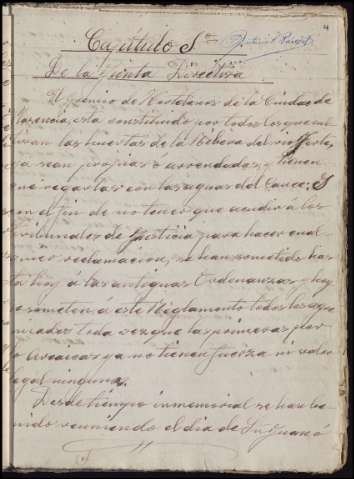 4
Capítulo 1º
De la Junta Directiva
El gremio de Hortelanos de la Ciudad de
lasencia, esta constituido por todos los que cul
tivan las huertas de la Ribera del rio Jerte,
ya sean propias o arrendadas, y tienen
que regarlas con las aguas del Cauce: Y
con el fin de no tener que acudir á los
tribunales de Justicia, para hacer cual
quier reclamación, se han sometido has
ta hoy á las antiguas Ordenanzas y hoy
se someten á este Reglamento todos los agre
miados toda vez que las primeras por
lo arcaicas ya no tienen fuerza ni valor
legal ninguna.
Desde tiempo inmemorial se han ve
nido reuniendo el día de San Juan